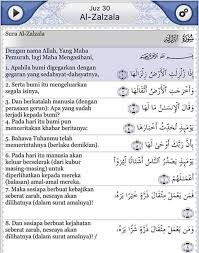 Juz 30
Al-Zalzala
Sura Al-Zalzala
سُورَةُ الزَّلْزَلَةِ
Dengan nama Allah, Yang Maha
Pemurah, lagi Maha Mengasihani,
1. Apabila bumi digegarkan dengan
gegaran yang sedahsyat-dahsyatnya,
إِذَا زُلْزِلَتِ الْأَرْضُ زِلْزَالَهَا
2. Serta bumi itu mengeluarkan
segala isinya,
وَأَخْرَجَتِ الْأَرْضُ أَثْقَالَهَا
3. Dan berkatalah manusia (dengan
perasaan gerun); Apa yang sudah
terjadi kepada bumi?
وَقَالَ الْإِنسَانُ مَا لَهَا
4. Pada hari itu bumi pun
menceritakan khabar beritanya:
يَوْمَئِذٍ تُحَدِّثُ أَخْبَارَهَا
5. Bahawa Tuhanmu telah
memerintahnya (berlaku demikian).
بِأَنَّ رَبَّكَ أَوْحَىٰ لَهَا
6. Pada hari itu manusia akan
keluar berselerak (dari kubur
masing-masing) untuk
diperlihatkan kepada mereka
(balasan) amal-amal mereka.
يَوْمَئِذٍ يَصْدُرُ النَّاسُ أَشْتَاتًا لِّيُرَوْا
أَعْمَالَهُمْ
7. Maka sesiapa berbuat kebajikan
seberat zarah, nescaya akan
dilihatnya (dalam surat amalnya)!
فَمَن يَعْمَلْ مِثْقَالَ ذَرَّةٍ خَيْرًا يَرَهُ
8. Dan sesiapa berbuat kejahatan
seberat zarah, nescaya akan
dilihatnya (dalam surat amalnya)! /
وَمَن يَعْمَلْ مِثْقَالَ ذَرَّةٍ شَرًّا يَرَهُ